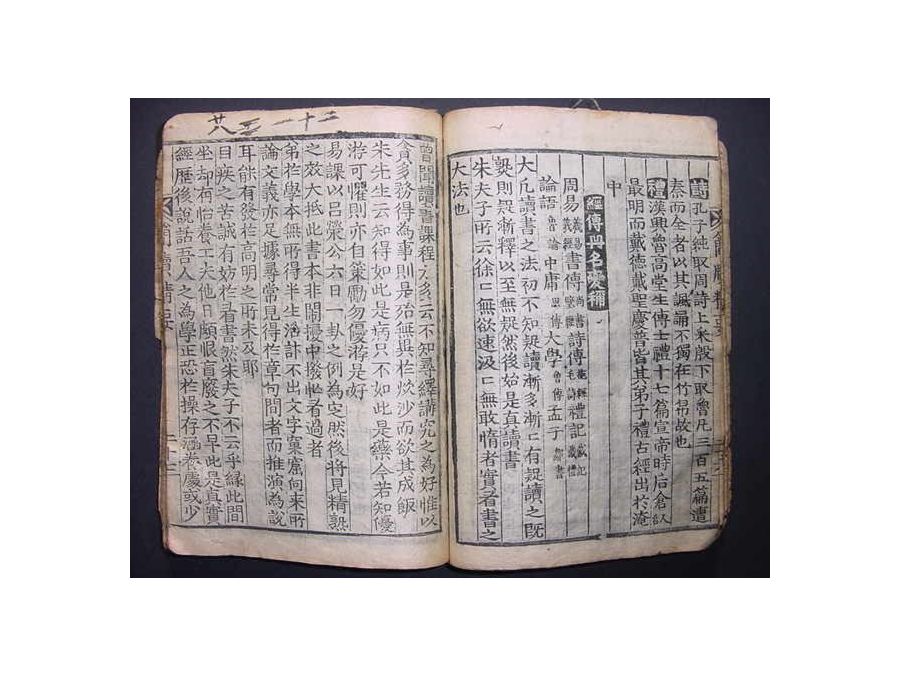 詩孔子純取周詩上采殷下取魯凡三百五篇遭
秦而全者以其諷誦不獨在竹帛故也
禮漢興魯高堂生傳士禮十七篇宣帝時后倉
最明而戴德戴聖慶普皆其弟子禮古經出於淹
中
經傳異名處稱
周易羲易羲經書傳尚書詩傳毛詩禮記戴記戴禮
論語魯論中庸思傳大學曾傳孟子鄒書
大凡讀書之法初不知疑讀漸多漸〻有疑讀之旣
熟則疑漸釋以至無疑然後始是真讀書
朱夫子所云徐〻無欲速汲〻無敢惰者實看書之
大法也
曾聞讀書課程太多云不知尋繹講究之為好惟以
貪多務得為事則是殆無異於炊沙而欲其成飯
朱先生云知得如此是病只不如此是藥今若知優
游可懼則亦自策勵勿優游是好
易課以呂滎公六日一卦之例為定然後將見精熟
之效大抵此書本非鬧擾中撥忙看過者
第於學本無所得半生活計不出文字窠窟向來所
論文義亦足據尋常見得於章句間者而推演為說
耳能有發於高明之所未及耶
目疾之苦誠有妨於看書然朱夫子不云乎緣此閒
坐却有怡養工夫他日頗恨盲廢之不早此是真實
經歷後說話吾人之為學正恐於操存涵養處或少
簡牘精要
簡牘精要
二十一